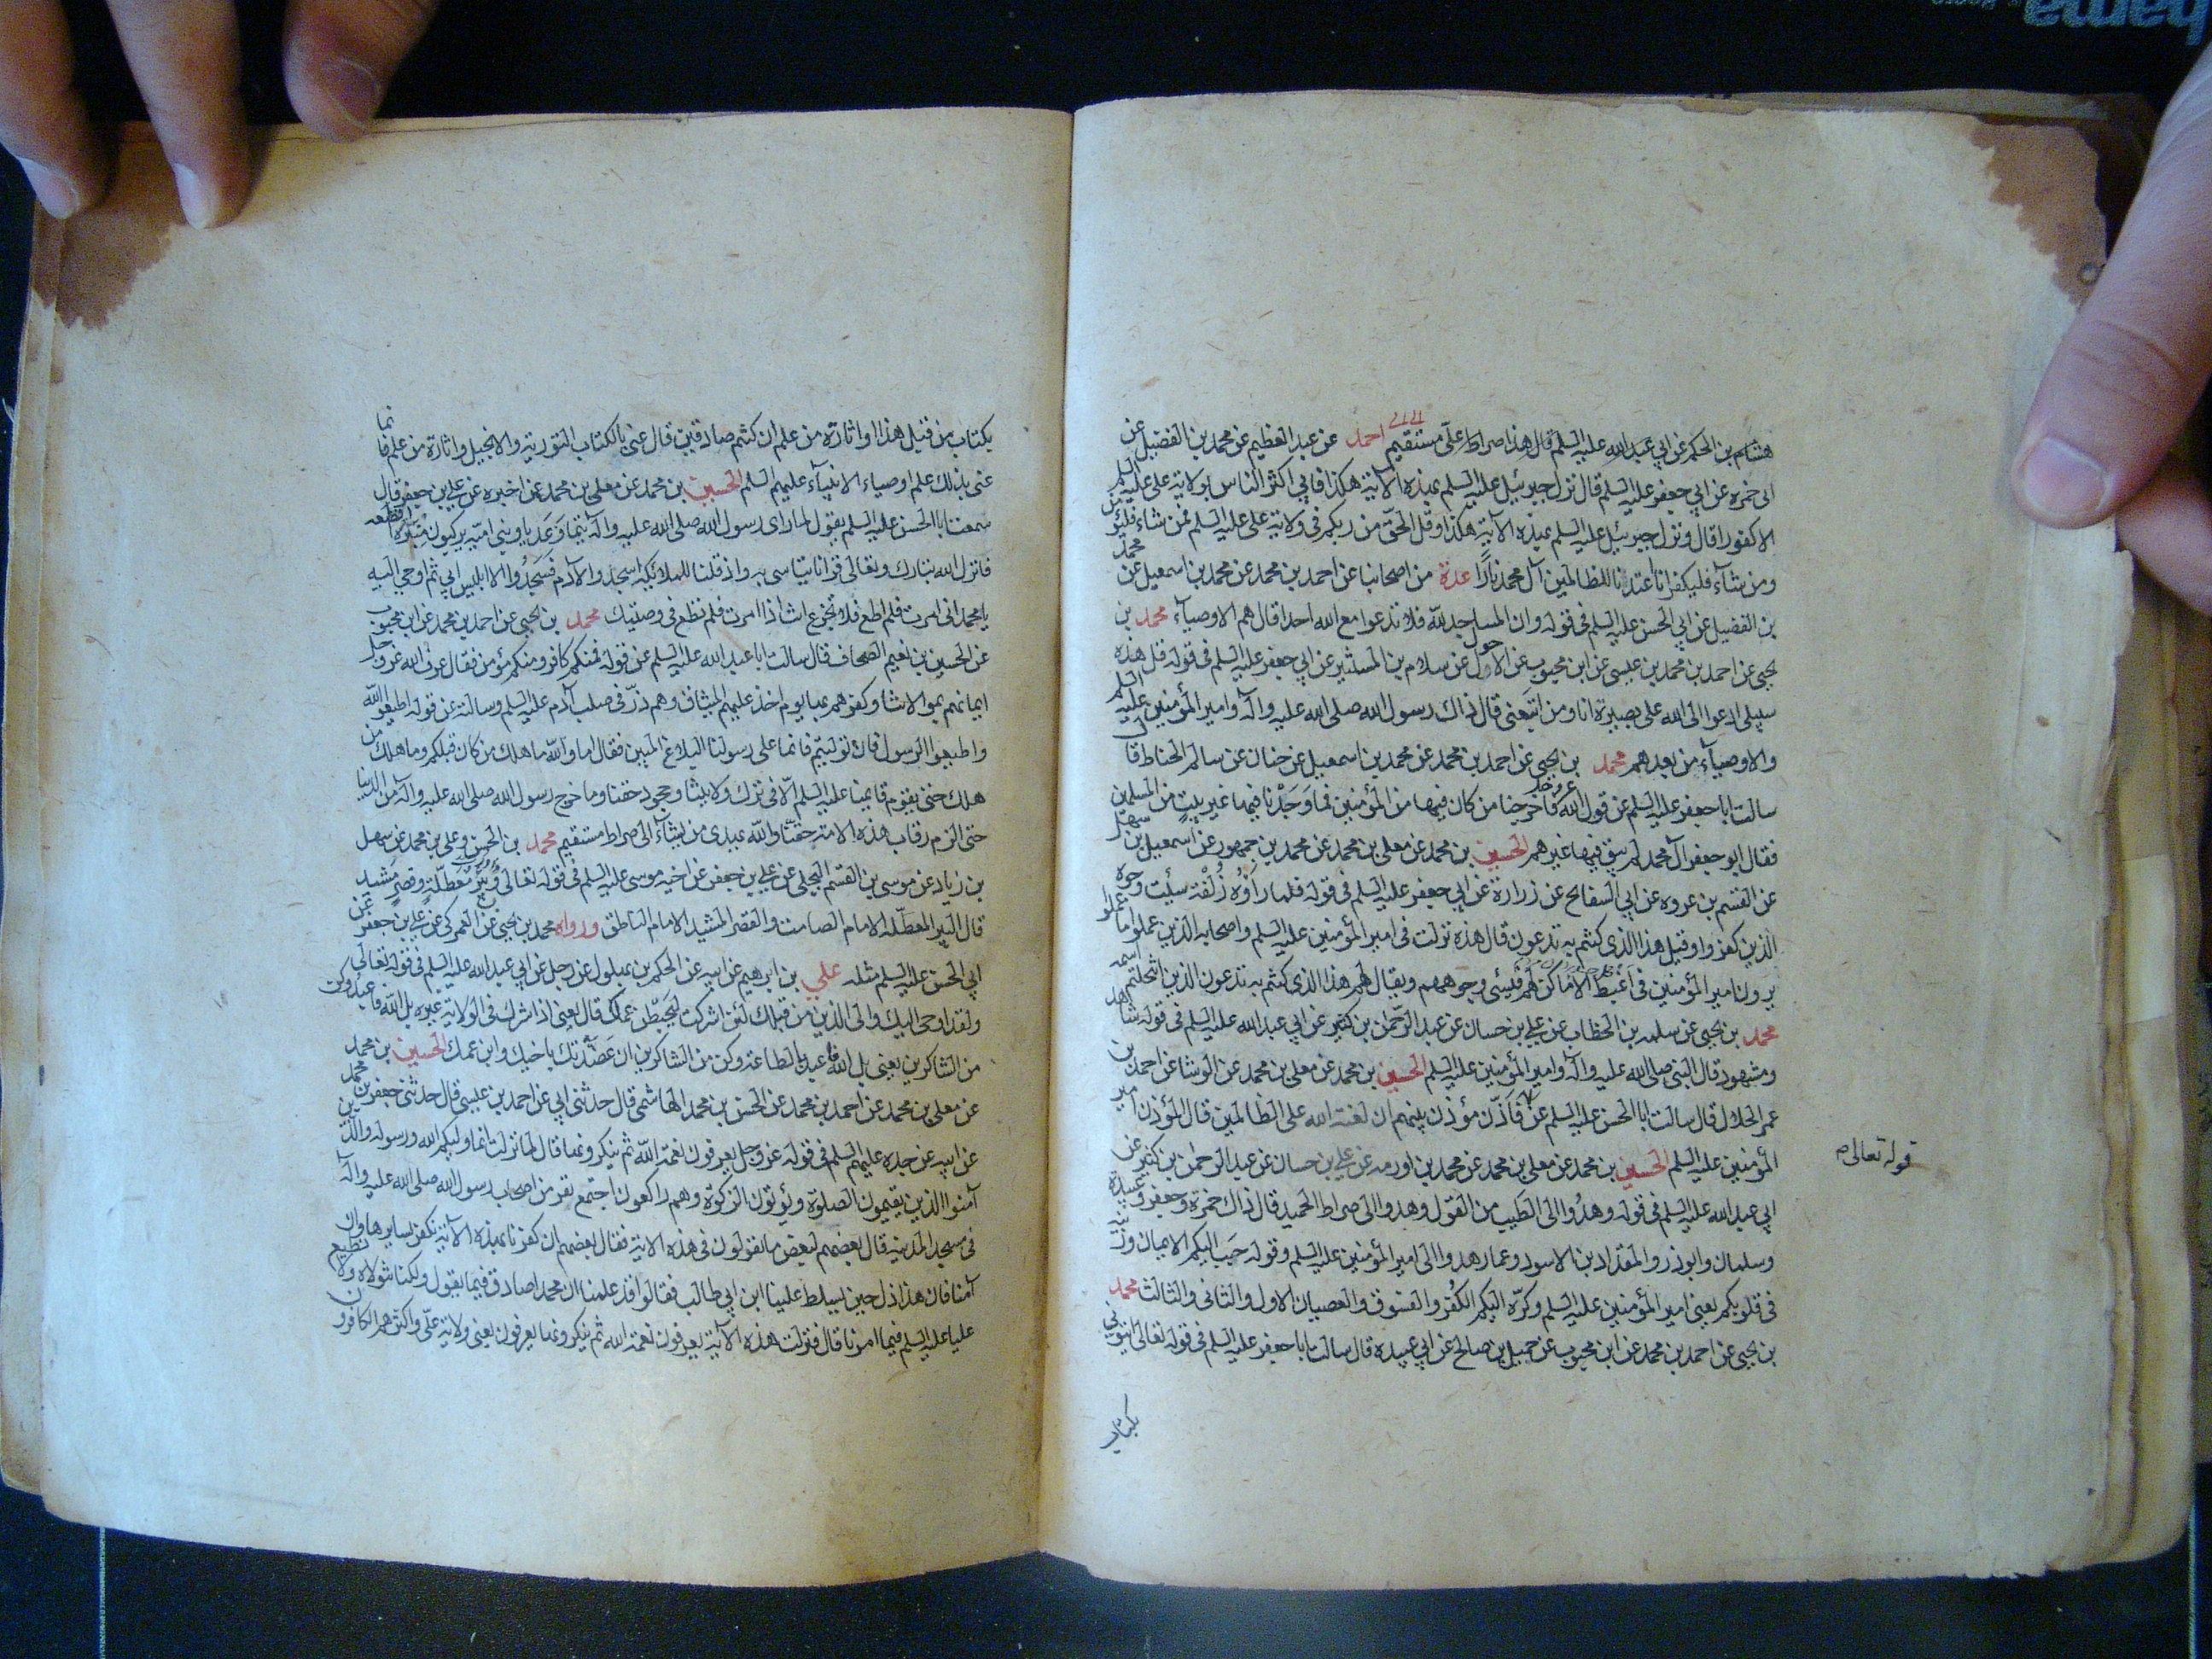 هشام بن الحكم عن ابي عبد الله عليه السلم قال هذا صراط علي مستقيم احمد عن عبد العظيم عن محمد بن الفضيل عن
ابى حمزه عن ابي جعفر عليه السلم قال نزل جبرئيل عليه السلم بهذه الآية هكذا فابي اكثر الناس بولاية علي عليه السلم
الا كفورا قال ونزل جبرئيل عليه السلم بهذه الآية هكذا وقل الحق من ربكم في ولاية على عليه السلم فمن شاء فليؤمن
ومن شآء فليكفر انا اعتدنا للظالمين آل محمد نارًا عدة من اصحابنا عن احمد بن محمد عن محمد بن اسمعيل عن محمد
بن الفضيل عن ابي الحسن عليه السلم في قوله وان المساجد لله فلا تدعوا مع الله احدا قال هم الاوصيآء محمد بن
يحيى عن احمد بن محمد بن عيسى عن ابن محبوب عن الاحول عن سلام بن المستنير عن ابي جعفر عليه السلم في قوله قل هذه
سبيلى ادعوا الى الله على بصيرة انا ومن اتبعني قال ذاك رسول الله صلى الله عليه وآله وامير المؤمنين عليه السلم
والاوصيآء من بعدهم محمد بن يحيى عن احمد بن محمد عن محمد بن اسمعيل عن حنان عن سالم الحناط قال
سالت ابا جعفر عليه السلم عن قول الله عز وجل فاخرجنا من كان فيها من المؤمنين فما وَجَدْنا فيها غير بيت من المسلمين
فقال ابو جعفر آل محمد لم يبق فيها غيرهم الحسين بن محمد عن معلى بن محمد عن محمد بن جمهور عن اسمعيل بن سهل
عن القسم بن عروه عن ابي السفاتج عن زرارة عن ابي جعفر عليه السلم في قوله فلما رَأَوْهُ زُلْفَة سيئت وجوه
الذين كفروا وقيل هذا الذي كنتم به تدعون قال هذه نزلت في امير المؤمنين عليه السلم واصحابه الذين عملوا ما عملوا
يرون امير المؤمنين في اَغْبَط الاَمَاكن لهم فيسئ وجوههم ويقال لهم هذا الذي كنتم به تدعون الذين انتحلتم اسمه
محمد بن يحيى عن سلمه بن الخطاب عن علي بن حسان عن عبد الرحمن بن كثير عن ابي عبد الله عليه السلم في قوله شاهد
ومشهود قال النبي صلى الله عليه وآله وامير المؤمنين عليه السلم الحسين بن محمد عن معلى بن محمد عن الوشا عن احمد بن
عمر الحلال قال سالت ابا الحسن عليه السلم عن فَاَذّن مؤذن بينهم ان لعنة الله على الظالمين قال المؤذن امير
المؤمنين عليه السلم الحسين بن محمد عن معلى بن محمد عن محمد بن اورمه عن علي بن حسان عن عبد الرحمن بن كثير عن
قوله تعالى
ابي عبد الله عليه السلم في قوله وهدُوا الى الطيب من القول وهدوا الى صراط الحميد قال ذاك حمزة وجعفر وعبيدة
وسلمان وابو ذر والمقداد بن الاسود وعمار هدوا الى امير المؤمنين عليه السلم وقوله حبب اليكم الايمان وزينه
في قلوبكم يعني امير المؤمنين عليه السلم وكرّه اليكم الكُفْر والفسوق والعصيان الاول والثاني والثالث محمد
بن يحيى عن احمد بن محمد عن ابن محبوب عن جميل بن صالح عن ابي عبيده قال سالت ابا جعفر عليه السلم في قوله تعالى ائتوني
بكتاب
بكتاب من قبل هذا او اثارة من علم ان كنتم صادقين قال عنى بالكتاب التورية والانجيل واثارة من علم فانما
عنى بذلك علم اوصياء الانبيآء عليهم السلم الحسين بن محمد عن معلى بن محمد عن اخبره عن علي بن جعفر قال
سمعت ابا الحسن عليه السلم يقول لما راى رسول الله صلى الله عليه وآله تيما وَعَديا وبني اميّه يركبون مِنْبَرَه افظعه
فانزل الله تبارك وتعالى قرانا يتاسى به واذ قلنا للملائكة اسجدوا لآدم فسَجَدُوا الا ابليس ابى ثم اوحى اليه
يا محمد انى امرت فلم اطع فلا تجزع انت اذا امرت فلم تطع في وصيك محمد بن يحيى عن احمد بن محمد عن ابن محبوب
عن الحسين بن نعيم الصحاف قال سالت ابا عبد الله عليه السلم عن قوله فمنكم كافر ومنكم مؤمن فقال عرف الله عز وجل
ايمانهم بموالاتنا وكفرهم بها يوم اخذ عليهم الميثاق وهم ذرّ في صلب آدم عليه السلم وسالته عن قوله اطيعوا الله
واطيعوا الرسول فان توليتم فانما على رسولنا البلاغ المبين فقال اما والله ما هلك من كان قبلكم وما هلك من
هلك حتى يقوم قايمنا عليه السلم الّا في ترك ولايتنا وجحود حقنا وما خرج رسول الله صلى الله عليه وآله من الدنيا
حتى الزم رقاب هذه الامة حقنا والله يهدى من يشآء الى صراط مستقيم محمد بن الحسن وعلي بن محمد عن سهل
بن زياد عن موسى بن القسم البجلي عن علي بن جعفر عن اخيه موسى عليه السلم في قوله تعالى وَبِئرٍ مُعَطَّلَةٍ وقصرٍ مشيد
قال البئر المعطّلة الامام الصامت والقصر المشيد الامام الناطق ورواه محمد بن يحيى عن العمركي عن علي بن جعفر عن
ابي الحسن عليه السلم مثله علي بن ابرهيم عن ابيه عن الحكم بن بهلول عن رجل عن ابي عبد الله عليه السلم في قوله تعالى
ولقد اوحى اليك والى الذين من قبلك لئن اشركت ليَحْبَطَن عملك قال يعني اذا اشرك في الولاية غيره بل الله فاعبد وكن
من الشاكرين يعني بل الله فاعبد بالطاعة وكن من الشاكرين ان عَضَدْتك باخيك وابن عمك الحسين بن محمد
عن معلى بن محمد عن احمد بن محمد عن الحسن بن محمد الهاشمى قال حدثني ابي عن احمد بن عيسى قال حدثني جعفر بن محمد
عن ابيه عن جده عليهم السلم في قوله عز وجل يعرفون نعمة الله ثم ينكرونها قال لما نزلت انما وليكم الله ورسوله والذين
آمنوا الذين يقيمون الصلوة ويؤتون الزكوة وهم راكعون اجتمع نفر من اصحاب رسول الله صلى الله عليه وآله
في مسجد المدينة قال بعضهم لبعض ما تقولون في هذه الآية فقال بعضهم ان كفرنا بهذه الآية نكفر بسايرها وان
آمنا فان هذا ذل حين يسلط علينا ابن ابي طالب فقالوا قد علمنا ان محمدا صادق فيما يقول ولكنا نتولاه ولا نطيع
عليا عليه السلم فيما امرنا قال فنزلت هذه الآية يعرفون نعمة الله ثم ينكرونها يعرفون يعني ولاية عليّ واكثرهم الكافرون